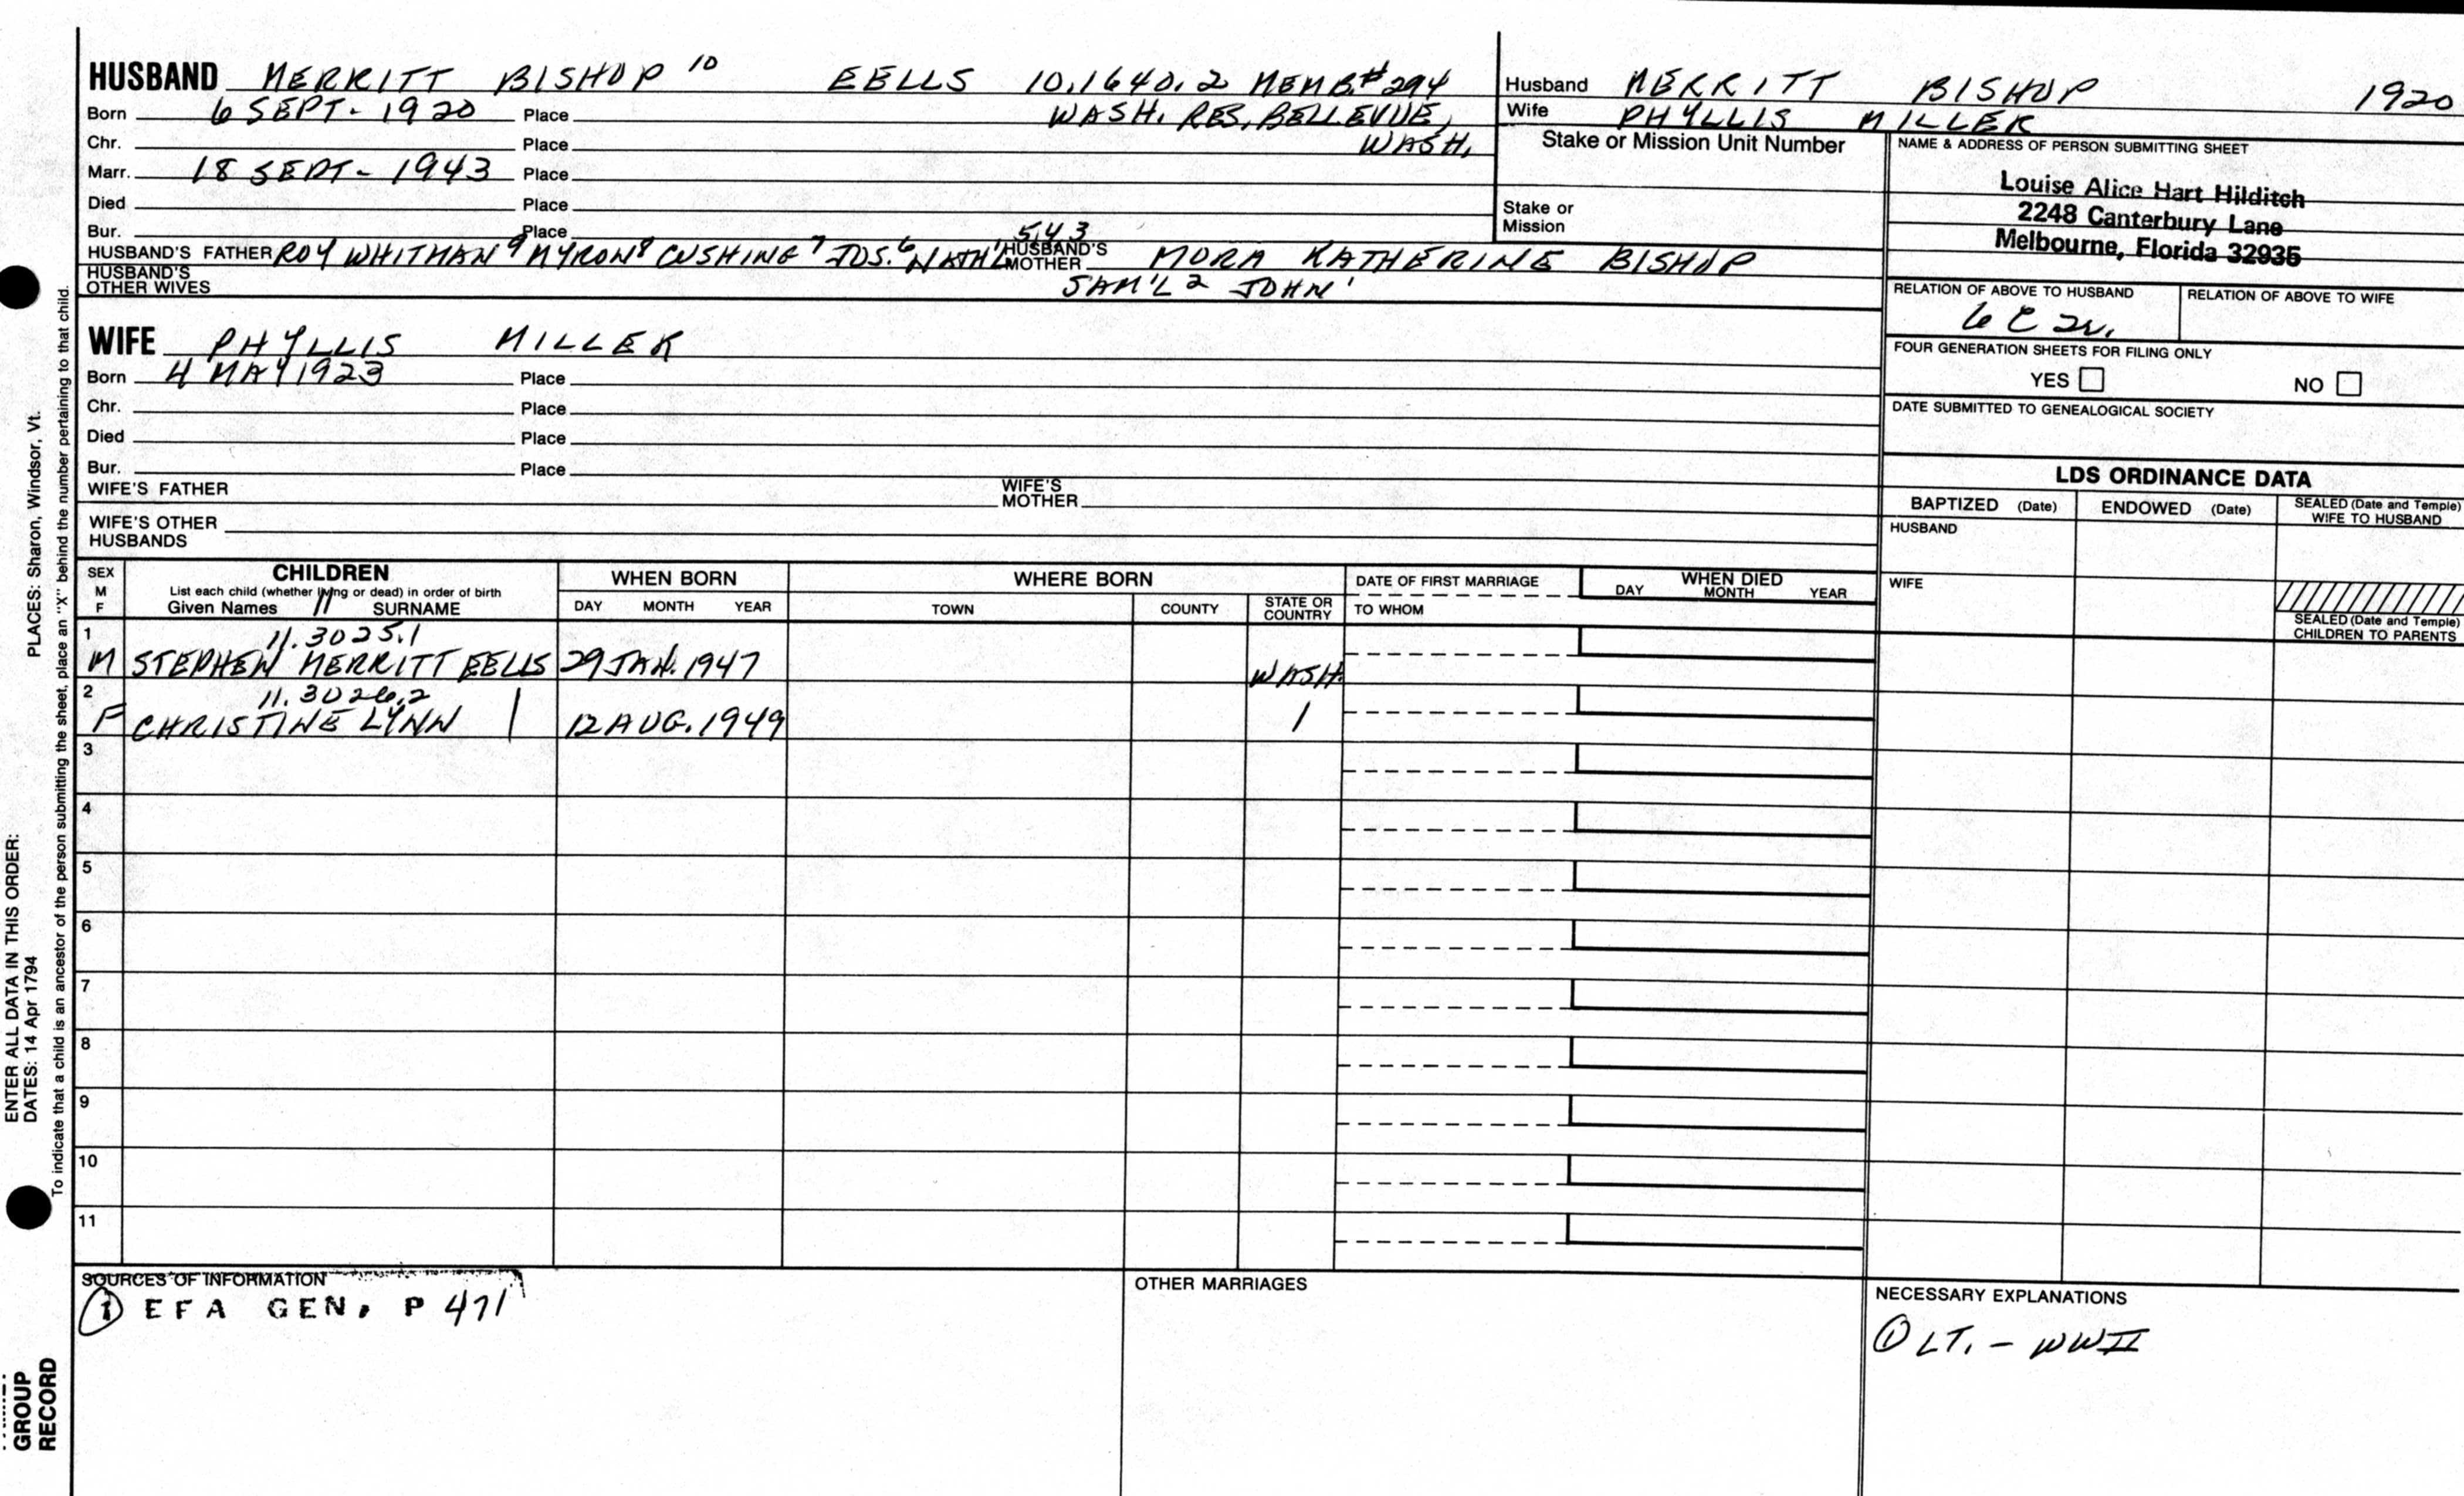 HUSBAND MERRITT BISHOP 10 EELLS 10.1640.2 MEMB.#294
Born 6 SEPT- 1920 Place WASH. RES. BELLEVUE,
Chr. Place WASH.
Marr. 18 SEPT- 1943 Place
Died Place
Bur. Place
HUSBAND'S FATHER ROY WHITMAN 9 MYRON 8 CUSHING 7 JOS. 6 NATH'L 5,4,3 HUSBAND'S MOTHER MORA KATHERINE BISHOP
HUSBAND'S OTHER WIVES SAM'L 2 JOHN 1
Husband MERRITT BISHOP 1920
Wife PHYLLIS MILLER
Stake or Mission Unit Number
Stake or Mission
NAME & ADDRESS OF PERSON SUBMITTING SHEET
Louise Alice Hart Hilditch
2248 Canterbury Lane
Melbourne, Florida 32935
RELATION OF ABOVE TO HUSBAND RELATION OF ABOVE TO WIFE
6 C 2r.
FOUR GENERATION SHEETS FOR FILING ONLY
YES NO
DATE SUBMITTED TO GENEALOGICAL SOCIETY
WIFE PHYLLIS MILLER
Born 4 MAY 1923 Place
Chr. Place
Died Place
Bur. Place
WIFE'S FATHER WIFE'S MOTHER
WIFE'S OTHER HUSBANDS
LDS ORDINANCE DATA
BAPTIZED (Date) ENDOWED (Date) SEALED (Date and Temple) WIFE TO HUSBAND
HUSBAND
WIFE
SEALED (Date and Temple) CHILDREN TO PARENTS
SEX M F
CHILDREN
List each child (whether living or dead) in order of birth
Given Names 11 SURNAME
WHEN BORN
DAY MONTH YEAR
WHERE BORN
TOWN COUNTY STATE OR COUNTRY
DATE OF FIRST MARRIAGE
TO WHOM
WHEN DIED
DAY MONTH YEAR
1 11.3025.1
M STEPHEN MERRITT EELLS 29 JAN. 1947 WASH.
2 11.3026.2
F CHRISTINE LYNN | 12 AUG. 1949 |
3
4
5
6
7
8
9
10
11
SOURCES OF INFORMATION
① EFA GEN. P 471
OTHER MARRIAGES
NECESSARY EXPLANATIONS
① LT. - WWII
ENTER ALL DATA IN THIS ORDER:
DATES: 14 Apr 1794 PLACES: Sharon, Windsor, Vt.
To indicate that a child is an ancestor of the person submitting the sheet, place an "X" behind the number pertaining to that child.
GROUP
RECORD